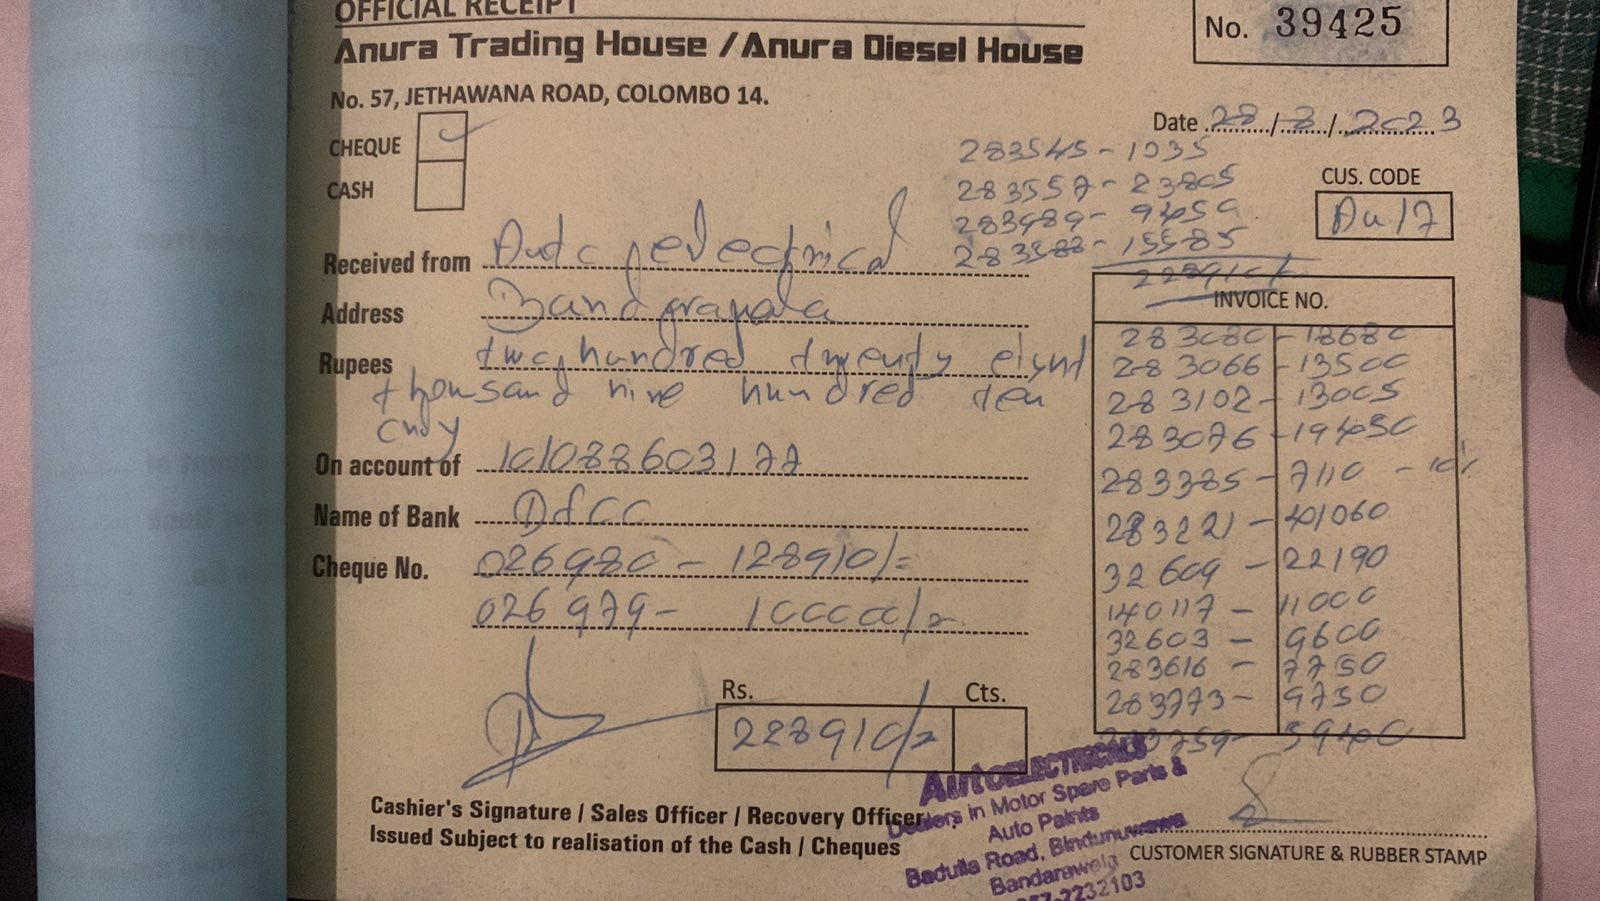 OFFICIAL RECEIPT
Anura Trading House / Anura Diesel House
No. 39425
No. 57, JETHAWANA ROAD, COLOMBO 14.
Date 28/8/2023
CHEQUE
CASH
283545 - 1035
283557 - 23805
283489 - 9459
283588 - 15585
228910/
CUS. CODE
Au 17
Received from electrical
Address
Rupees two hundred twenty eight
thousand nine hundred ten
only
On account of 101088603177
Name of Bank DFCC
Cheque No. 026980 - 128910/=
026979 - 100000/=
INVOICE NO.
283080 - 18680
283066 - 13500
283102 - 13005
283076 - 19450
283385 - 7110 - 10%
283221 - 41060
32609 - 22190
140117 - 11000
32603 - 9600
283616 - 7750
283773 - 9750
5940
Rs. Cts.
228910/=
Cashier's Signature / Sales Officer / Recovery Officer
Issued Subject to realisation of the Cash / Cheques
AUTOELECTRICALS
Dealers in Motor Spare Parts &
Auto Paints
Badulla Road, Bindunuwewa
Bandarawela
057-2232103
CUSTOMER SIGNATURE & RUBBER STAMP